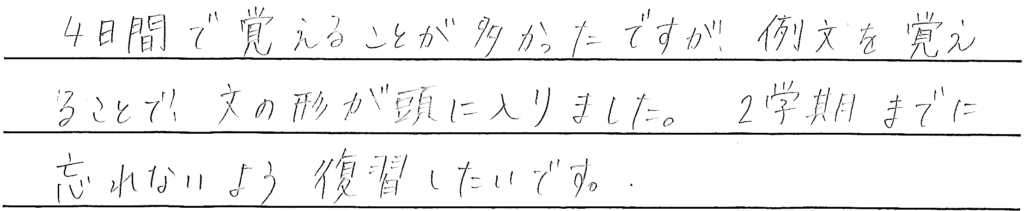 4日間で覚えることが多かったですが、例文を覚え
ることで、文の形が頭に入りました。2学期までに
忘れないよう復習したいです。